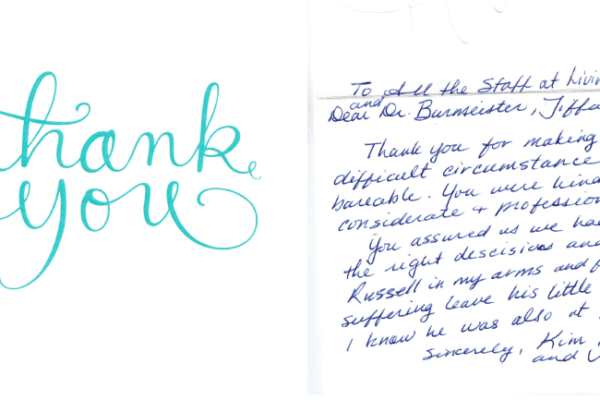 thank
you
To All the Staff at Livin
and
Dear Dr. Burmeister, Tiffa
Thank you for making
difficult circumstance
bareable. You were kind
considerate + profession
You assured us we had
the right descisions and
Russell in my arms and f
suffering leave his little
I know he was also at
Sincerely, Kim
and